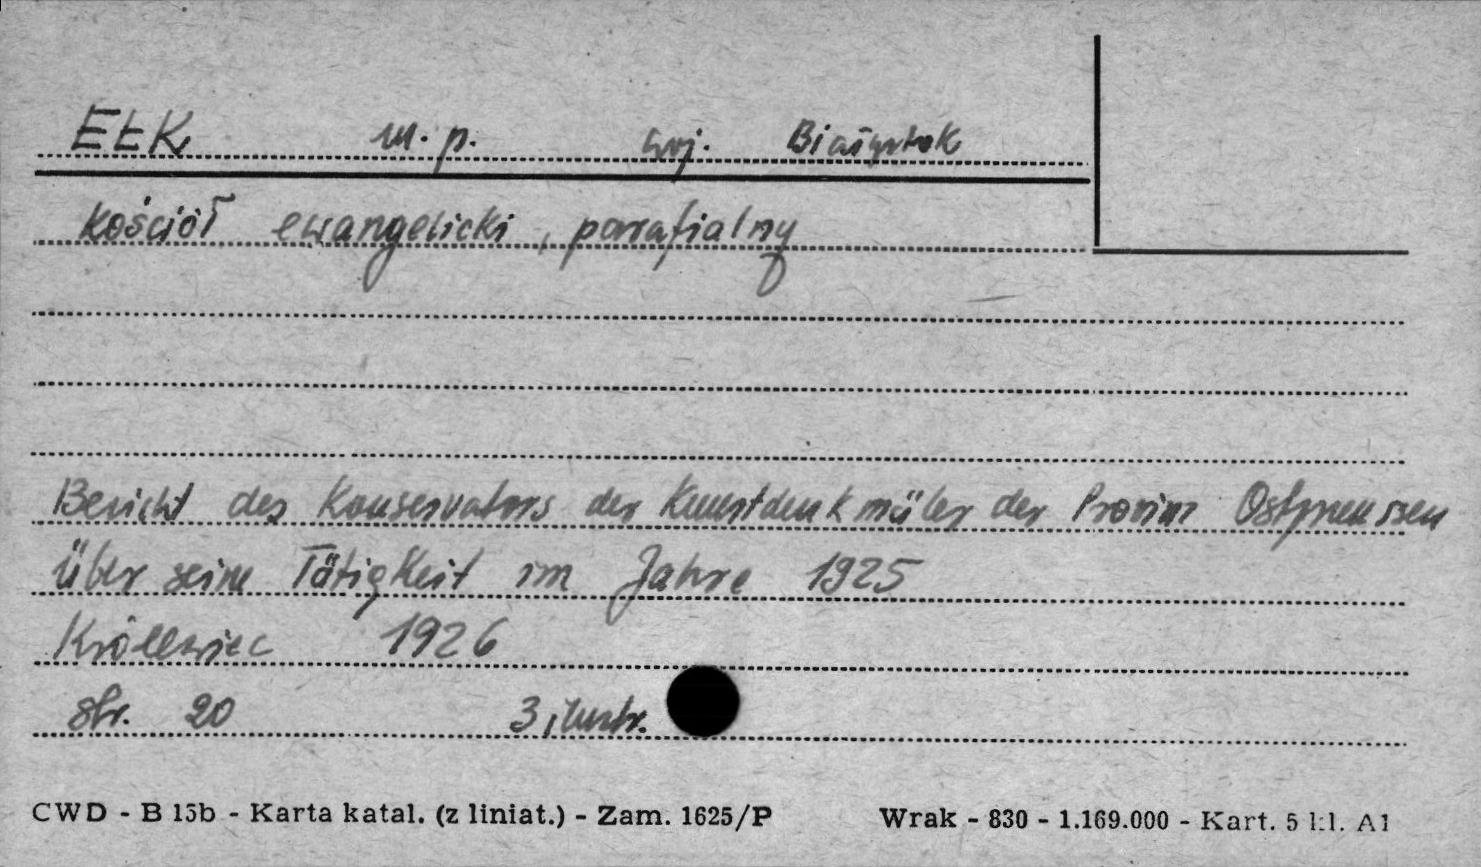 EŁK m. p. woj. Białystok
kościół ewangelicki, parafialny
Bericht des Konservators der Kunstdenkmäler der Provinz Ostpreussen
über seine Tätigkeit im Jahre 1925
Królewiec 1926
str. 20 3 ilustr.
CWD - B 15b - Karta katal. (z liniat.) - Zam. 1625/P Wrak - 830 - 1.169.000 - Kart. 5 kl. A1